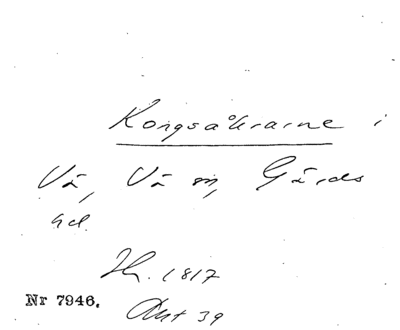 Kongsåkrarne i
Vä, Vä sn, Gärds
hd.
Hs. 1817
Nr 7946.
Akt 39